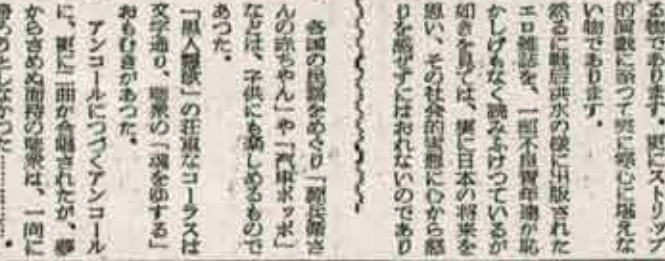 る物であります。更にストリップ
的演戯に至つて実に寒心に堪えな
い物であります。
然るに戦后洪水の様に出版された
エロ雑誌を、一部不良青年達が恥
かしげもなく読みふけつているが
如きを見ては、実に日本の将来を
思い、その社会的実態に心から怒
りを感ぜずにはおれないのであり
各国の民謡をめぐり「兵隊さ
んの赤ちやん」や「汽車ポッポ」
などは、子供にも楽しめるもので
あつた。
「黒人霊歌」の荘重なコーラスは
文字通り、聴衆の「魂をゆする」
おもむきがあつた。
アンコールにつづくアンコール
に、更に二曲が合唱されたが、夢
からさめぬ面持の聴衆は、一向に
しなかつた…………。